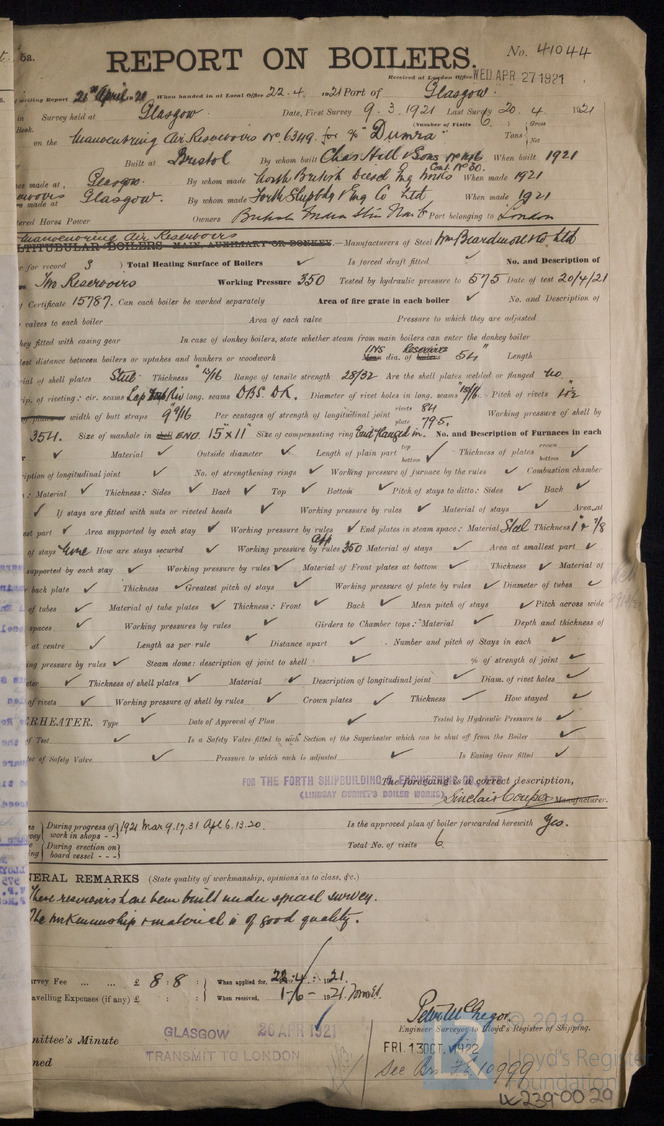 REPORT ON BOILERS.
No. 41044
Received at London Office WED APR 27 1921
writing Report 21st April 21 When handed in at Local Office 22.4. 1921 Port of Glasgow.
in Survey held at Glasgow. Date, First Survey 9.3.1921 Last Survey 20.4 1921
Book. (Number of Visits 6.)
on the Manoeuvring Air Reservoirs No. 6349. for "Dumra" Tons Gross Net
Built at Bristol By whom built Chas Hill & Sons When built 1921
made at Glasgow. By whom made North British Diesel Eng Works When made 1921
made at Glasgow. By whom made Forth Shipbdg & Eng Co Ltd When made 1921
tered Horse Power Owners British India Stm Nav Co Port belonging to London
Manoeuvring Air Reservoirs
LTITUBULAR BOILERS—MAIN, AUXILIARY OR DONKEY.—Manufacturers of Steel Wm Beardmore & Co Ltd
for record 3 ) Total Heating Surface of Boilers ✓ Is forced draft fitted ✓ No. and Description of
Two Reservoirs Working Pressure 350 Tested by hydraulic pressure to 575 Date of test 20/4/21
Certificate 15787. Can each boiler be worked separately Area of fire grate in each boiler ✓ No. and Description of
valves to each boiler Area of each valve Pressure to which they are adjusted
hey fitted with easing gear In case of donkey boilers, state whether steam from main boilers can enter the donkey boiler
lest distance between boilers or uptakes and bunkers or woodwork INS dia. of Reservoirs 54" Length
rial of shell plates Steel Thickness 13/16" Range of tensile strength 28/32 Are the shell plates welded or flanged No.
rip. of riveting: cir. seams Lap long. seams D.B.S. Diameter of rivet holes in long. seams Pitch of rivets
width of butt straps 9 9/16 Per centages of strength of longitudinal joint rivets 84 plate 79.5. Working pressure of shell by
354. Size of manhole in END. 15" x 11" Size of compensating ring End flanged in. No. and Description of Furnaces in each
✓ Material ✓ Outside diameter ✓ Length of plain part top bottom ✓ Thickness of plates crown bottom ✓
ription of longitudinal joint ✓ No. of strengthening rings ✓ Working pressure of furnace by the rules ✓ Combustion chamber
: Material ✓ Thickness: Sides ✓ Back ✓ Top ✓ Bottom ✓ Pitch of stays to ditto: Sides ✓ Back ✓
✓ If stays are fitted with nuts or riveted heads ✓ Working pressure by rules ✓ Material of stays ✓ Area at
est part ✓ Area supported by each stay ✓ Working pressure by rules ✓ End plates in steam space: Material Steel Thickness 1" & 7/8
of stays None How are stays secured ✓ Working pressure by rules 350 Material of stays ✓ Area at smallest part ✓
supported by each stay ✓ Working pressure by rules ✓ Material of Front plates at bottom ✓ Thickness ✓ Material of
back plate ✓ Thickness ✓ Greatest pitch of stays ✓ Working pressure of plate by rules ✓ Diameter of tubes ✓
of tubes ✓ Material of tube plates ✓ Thickness: Front ✓ Back ✓ Mean pitch of stays ✓ Pitch across wide
spaces ✓ Working pressures by rules ✓ Girders to Chamber tops: Material ✓ Depth and thickness of
at centre ✓ Length as per rule ✓ Distance apart ✓ Number and pitch of Stays in each ✓
ing pressure by rules ✓ Steam dome: description of joint to shell ✓ % of strength of joint ✓
ter ✓ Thickness of shell plates ✓ Material ✓ Description of longitudinal joint ✓ Diam. of rivet holes ✓
of rivets ✓ Working pressure of shell by rules ✓ Crown plates ✓ Thickness ✓ How stayed ✓
ERHEATER. Type ✓ Date of Approval of Plan ✓ Tested by Hydraulic Pressure to ✓
of Test ✓ Is a Safety Valve fitted to each Section of the Superheater which can be shut off from the Boiler ✓
ter of Safety Valve ✓ Pressure to which each is adjusted ✓ Is Easing Gear fitted ✓
The foregoing is a correct description,
FOR THE FORTH SHIPBUILDING & ENGINEERING CO. LTD.
(LINDSAY BURNET'S BOILER WORKS) Sinclair Couper Manufacturer.
During progress of work in shops - - 1921 Mar 9.17.31 Apl 6.13.20. Is the approved plan of boiler forwarded herewith Yes.
During erection on board vessel - - - Total No. of visits 6
NERAL REMARKS (State quality of workmanship, opinions as to class, &c.)
These reservoirs have been built under special survey.
The workmanship & material is of good quality.
urvey Fee ... ... £ 8 : 8 : When applied for, 22.4. 1921.
avelling Expenses (if any) £ : : When received, 1-6- 1921.
Peter McGregor.
Engineer Surveyor to Lloyd's Register of Shipping.
mittee's Minute GLASGOW 26 APR 1921
FRI. 13 OCT. 1922
ned TRANSMIT TO LONDON
See Brs. 10999
© 2019
Lloyd's Register
Foundation
W239-0029